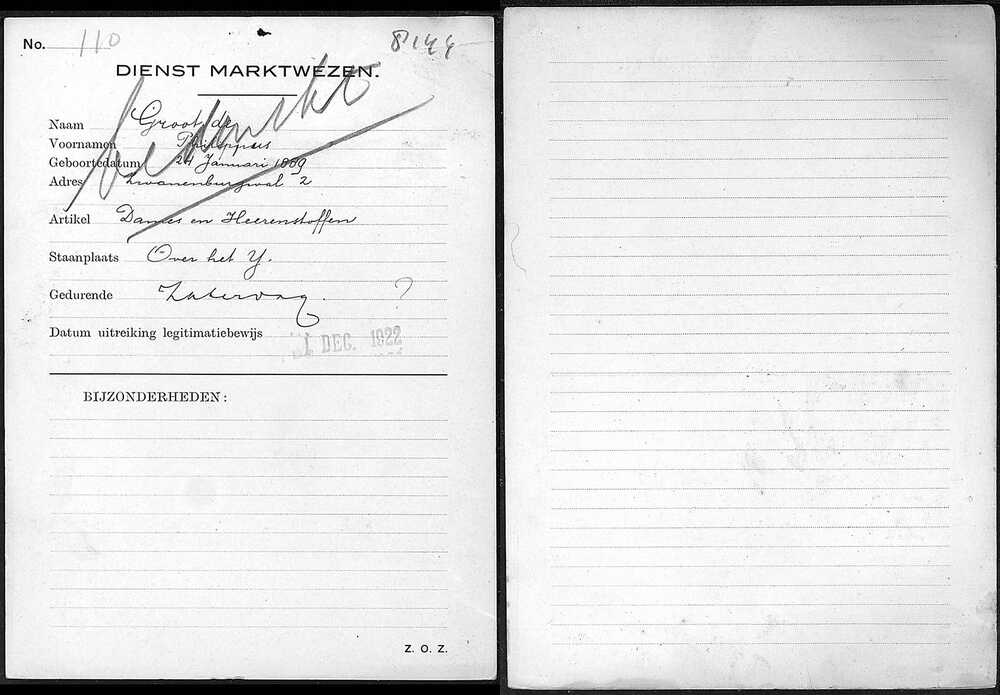 No. 110 8144
DIENST MARKTWEZEN.
bedankt
Naam Groot, de
Voornamen Philippus
Geboortedatum 24 Januari 1889
Adres Zwanenburgwal 2
Artikel Dames en Heerenstoffen
Staanplaats Over het Y.
Gedurende Zaterdag. ?
Datum uitreiking legitimatiebewijs
1 DEC. 1922
BIJZONDERHEDEN:
Z. O. Z.